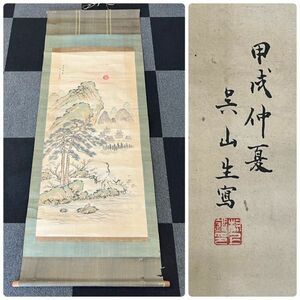 甲戌仲夏
呉山生寫